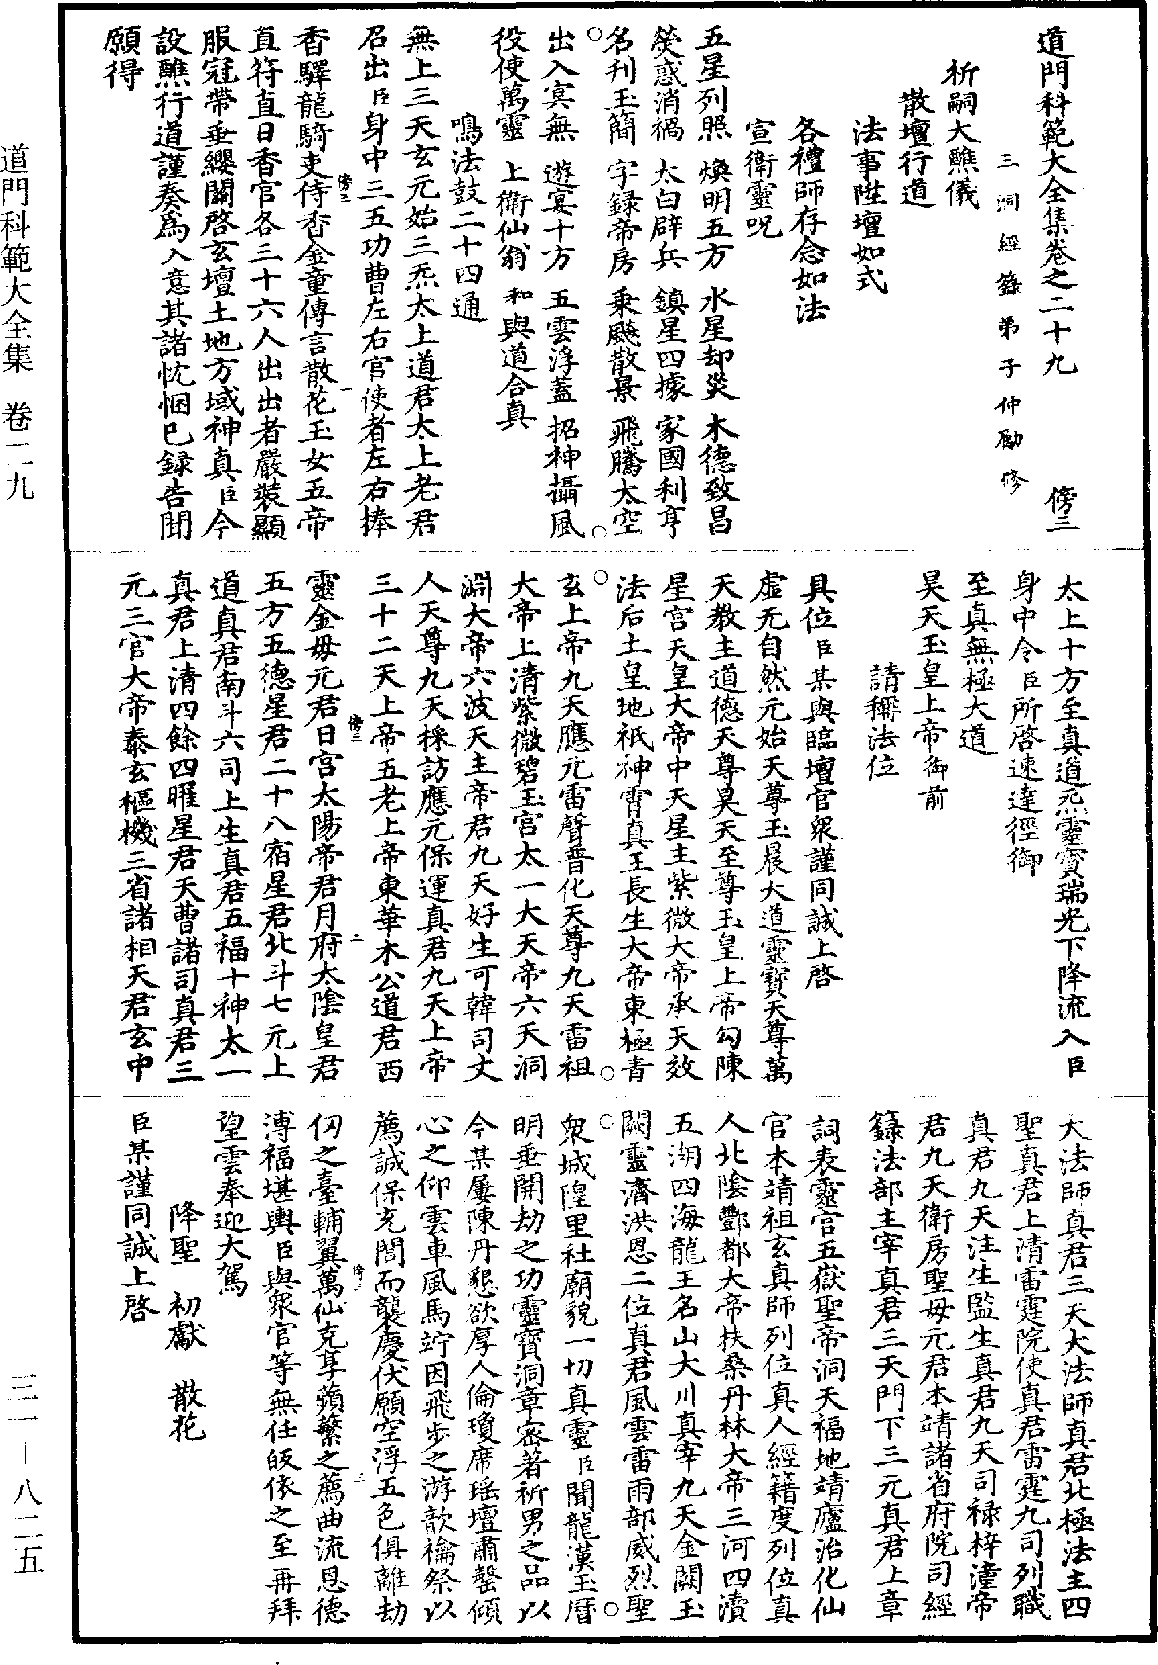 道門科範大全集卷之二十九　傍三
三洞經籙弟子仲勵修
祈嗣大醮儀
散壇行道
法事陞壇如式
各禮師存念如法
宣衛靈呪
五星列照　煥明五方　水星却災　木德致昌
熒惑消禍　太白辟兵　鎮星四據　家國利亨
名刋玉簡　字録帝房　乘飈散景　飛騰太空
出入冥無　遊宴十方　五雲浮蓋　招神攝風
役使萬靈　上衛仙翁　和與道合真
鳴法鼓二十四通
無上三天玄元始三炁太上道君太上老君
召出臣身中三五功曹左右官使者左右捧
香驛龍騎吏侍香金童傳言散花玉女五帝
直符直日香官各三十六人出出者嚴裝顯
服冠帶垂纓關啓玄壇土地方域神真臣今
設醮行道謹奏爲入意其諸忱悃已録告聞
願得
傍三
一
太上十方至真道炁靈寳瑞光下降流入臣
身中令臣所啓速達徑御
至真無極大道
昊天玉皇上帝御前
請稱法位
具位臣某與臨壇官衆謹同誠上啓
虛无自然元始天尊玉晨大道靈寳天尊萬
天教主道德天尊昊天至尊玉皇上帝勾陳
星宫天皇大帝中天星主紫微大帝承天效
法后土皇地祇神霄真王長生大帝東極青
玄上帝九天應元雷聲普化天尊九天雷祖
大帝上清紫微碧玉宫太一大天帝六天洞
淵大帝六波天主帝君九天好生可韓司丈
人天尊九天採訪應元保運真君九天上帝
三十二天上帝五老上帝東華木公道君西
靈金母元君日宫太陽帝君月府太陰皇君
五方五德星君二十八宿星君北斗七元上
道真君南斗六司上生真君五福十神太一
真君上清四餘四曜星君天曹諸司真君三
元三官大帝泰玄樞機三省諸相天君玄中
傍三
二
大法師真君三天大法師真君北極法主四
聖真君上清雷霆院使真君雷霆九司列職
真君九天注生監生真君九天司禄梓潼帝
君九天衛房聖母元君本靖諸省府院司經
籙法部主宰真君三天門下三元真君上章
詞表靈官五嶽聖帝洞天福地靖廬治化仙
官本靖祖玄真師列位真人經籍度列位真
人北陰酆都大帝扶桑丹林大帝三河四瀆
五湖四海龍王名山大川真宰九天金闕玉
闕靈濟洪恩二位真君風雲雷雨部威烈聖
衆城隍里社廟貌一切真靈臣聞龍漢玉曆
明垂開劫之功靈寳洞章密著祈男之品以
今某屢陳丹懇欲厚人倫瓊席瑶壇肅罄傾
心之仰雲車風馬竚因飛步之游歆禴祭以
薦誠保充閭而襲慶伏願空浮五色俱離劫
仞之臺輔翼萬仙克享蘋蘩之薦曲流恩德
溥福堪輿臣與衆官等無任皈依之至再拜
望雲奉迎大駕
降聖　初獻　散花
臣某謹同誠上啓
道門科範大全集　卷二九
三一—八二五